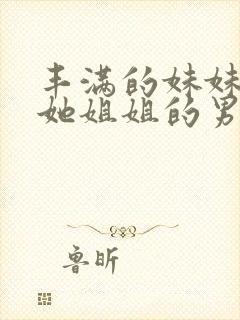 丰满的妹妹
她姐姐的男
鲁昕